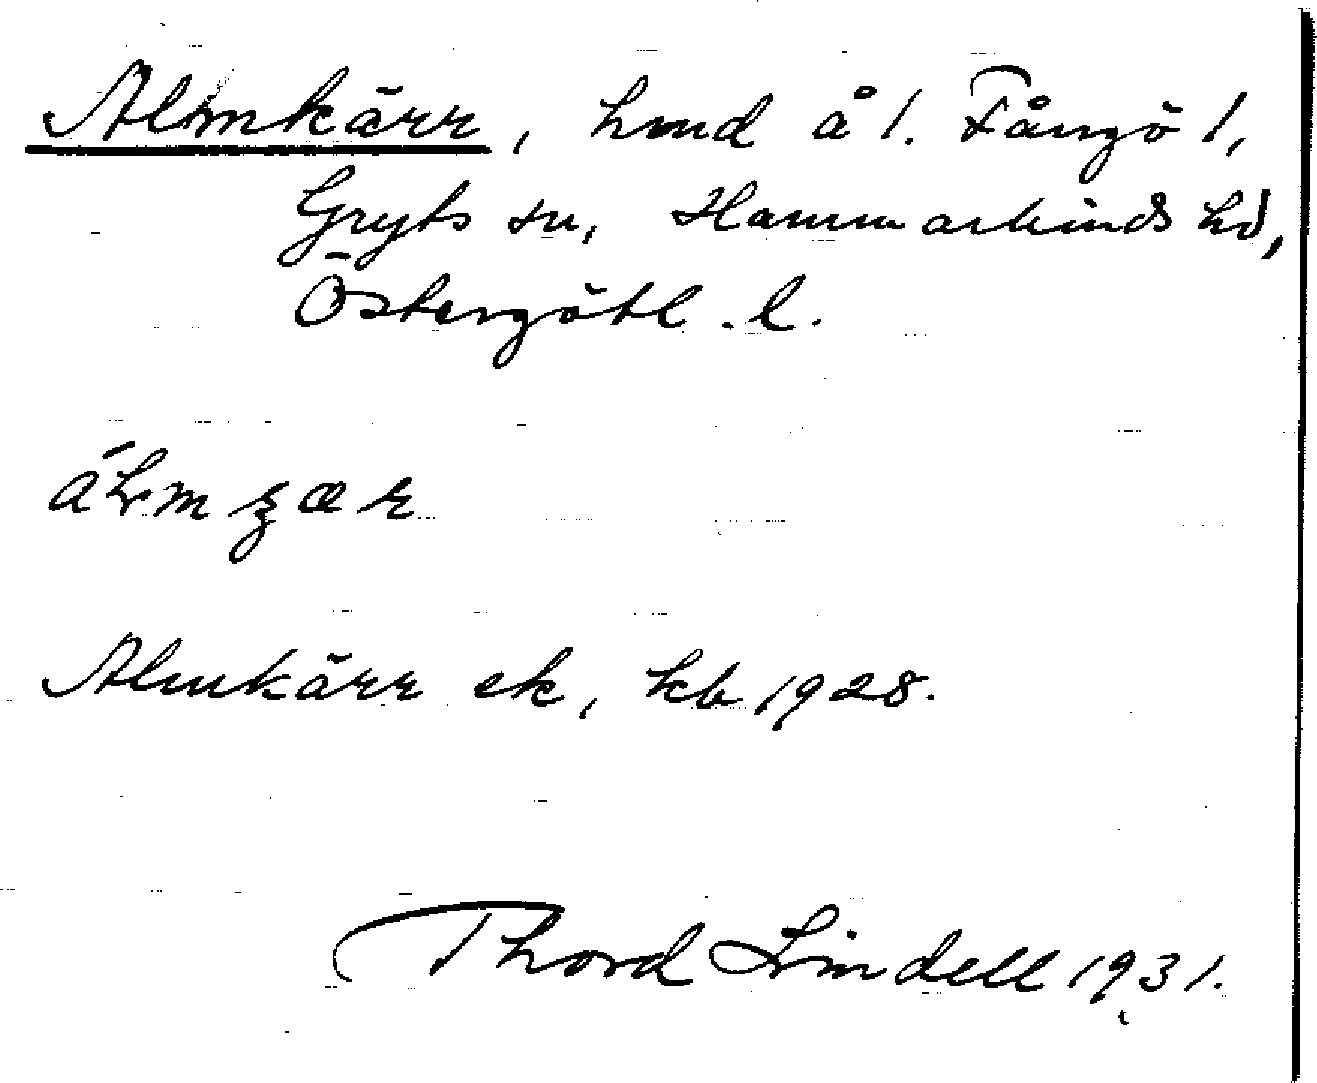 Almkärr, hmd å 1. Fångö 1,
Gryts sn, Hammarkinds hd,
Östergötl. l.
Almkärr ek, kb 1928.
Thord Lindell 1931.